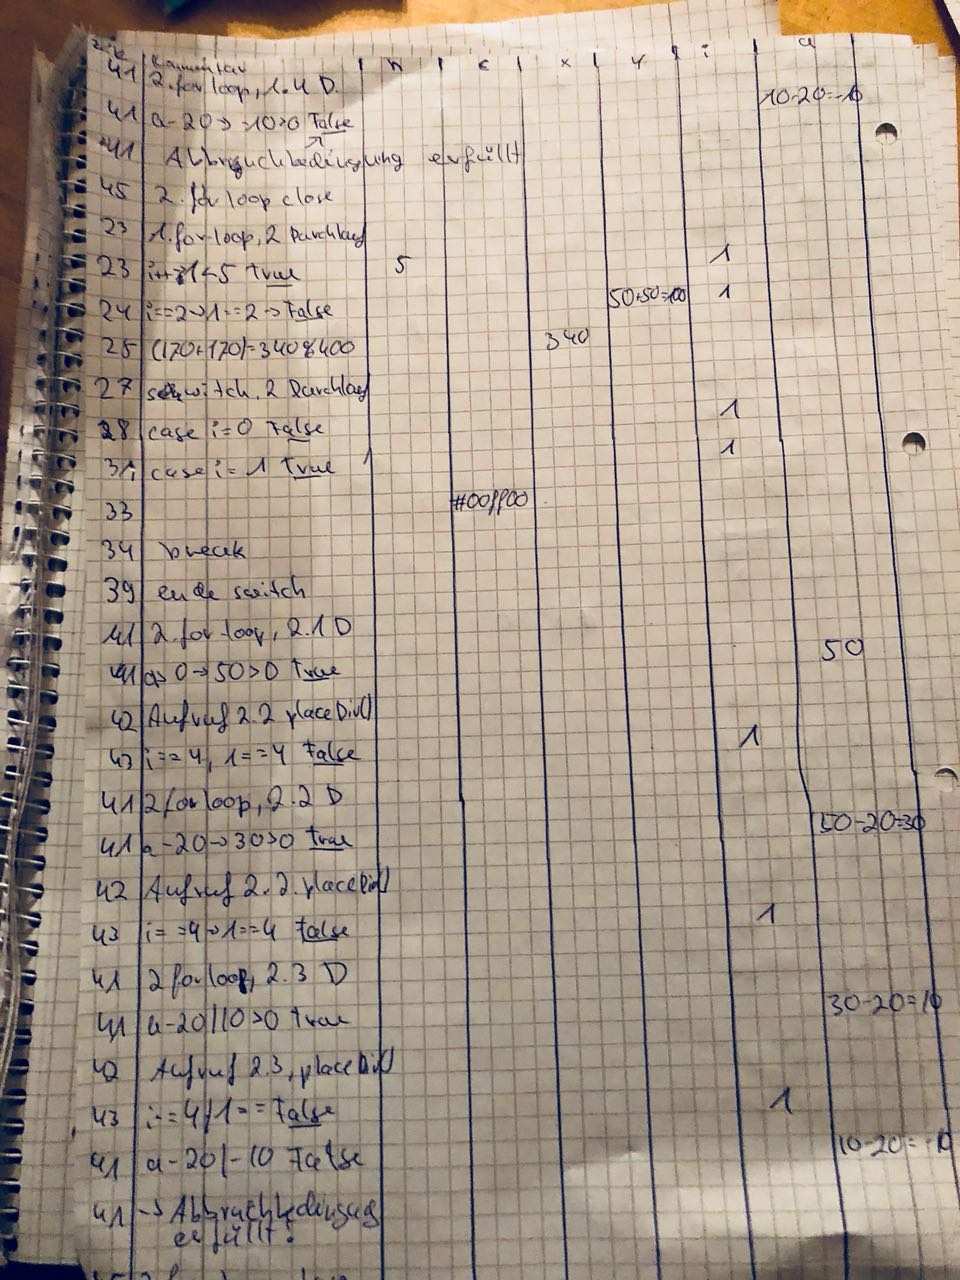 Zeile Kommentar n c x y i a
41 2.for loop, 1.4 D.
10-20=-10
41 a-20→-10>0 False
41 Abbruchbedingung erfüllt
45 2. for loop close
23 1.for loop, 2 Durchlauf
1
23 i++ 1<5 True 5
1
24 i==2→1==2→False 50+50=100
25 (170+170)=340%400 340
27 switch, 2 Durchlauf
1
28 case i=0 False
1
31 case i=1 True
33 #00ff00
34 break
39 ende switch
41 2.for loop, 2.1 D
50
41 a>0→50>0 True
42 Aufruf 2.2 placeDiv()
1
43 i==4, 1==4 False
41 2 for loop, 2.2 D
50-20=30
41 a-20→30>0 True
42 Aufruf 2.2. placeDiv()
1
43 i==4→1==4 False
41 2 for loop, 2.3 D
30-20=10
41 a-20|10>0 True
42 Aufruf 2.3, placeDiv()
1
43 i==4/1==False
10-20=-10
41 a-20|-10 False
41 → Abbruchbedingung
erfüllt!